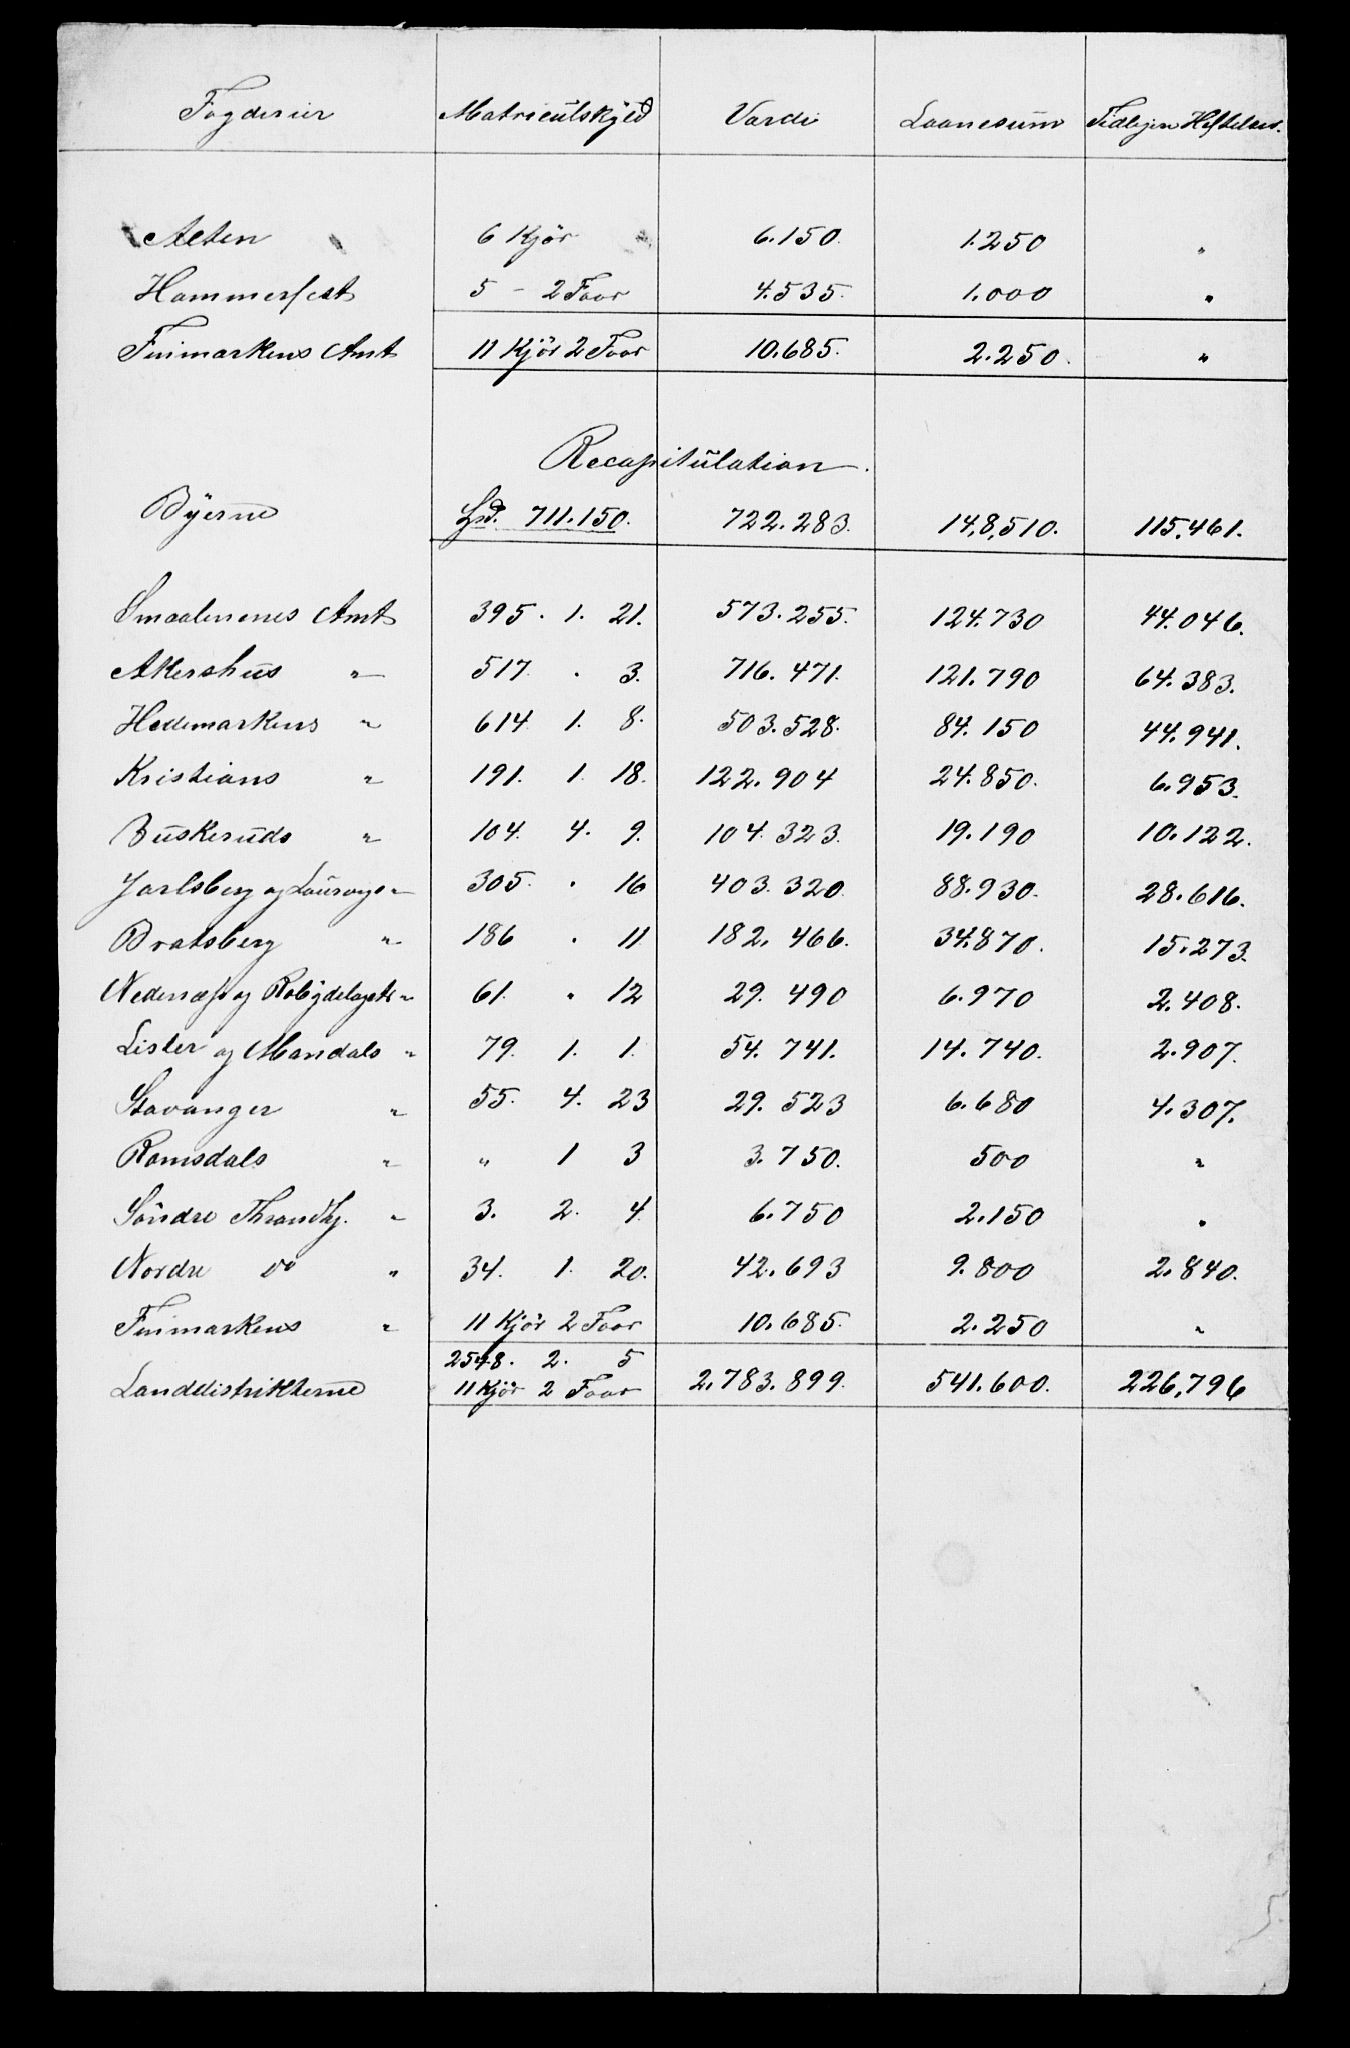 Fogderier Matriculskyld Værdi Laanesum Tidligere Heftelser.
Alten 6 Kjör 6.150. 1.250 "
Hammerfest 5 - 2 Foor 4.535. 1.000 "
Finmarkens Amt 11 Kjör 2 Foor 10.685. 2.250. "
Recapitulation.
Byerne 711.150. 722.283. 14,8,510. 115,461.
Smaalenenes Amt 395. 1. 21. 573.255. 124.730 44.046.
Akershus " 517 . 3. 716.471. 121.790 64.383.
Hedemarkens " 614 1. 8. 503.528. 84.150 44.941.
Kristians " 191. 1. 18. 122.904 24.850. 6.953.
Buskeruds " 104. 4. 9. 104.323. 19.190 10.122.
Jarlsberg og Laurvigs " 305. . 16 403.320. 88.930. 28.616.
Bratsberg " 186 . 11 182.466. 34.870. 15.273.
Nedenæs og Robygdelagets " 61. . 12 29.490 6.970 2.408.
Lister og Mandals " 79. 1. 1. 54.741. 14.740. 2.907.
Stavanger " 55. 4. 23 29.523 6.680 4.307.
Romsdals " " 1 3 3.750. 500 "
Söndre Throndhj. " 3. 2. 4. 6.750 2.150 "
Nordre do " 34. 1. 20. 42.693 9.800 2.840.
Finmarkens " 11 Kjör 2 Foor 10.685. 2.250 "
2548. 2. 5
Landdistrikterne 11 Kjör 2 Foor 2.783.899. 541.600. 226,796